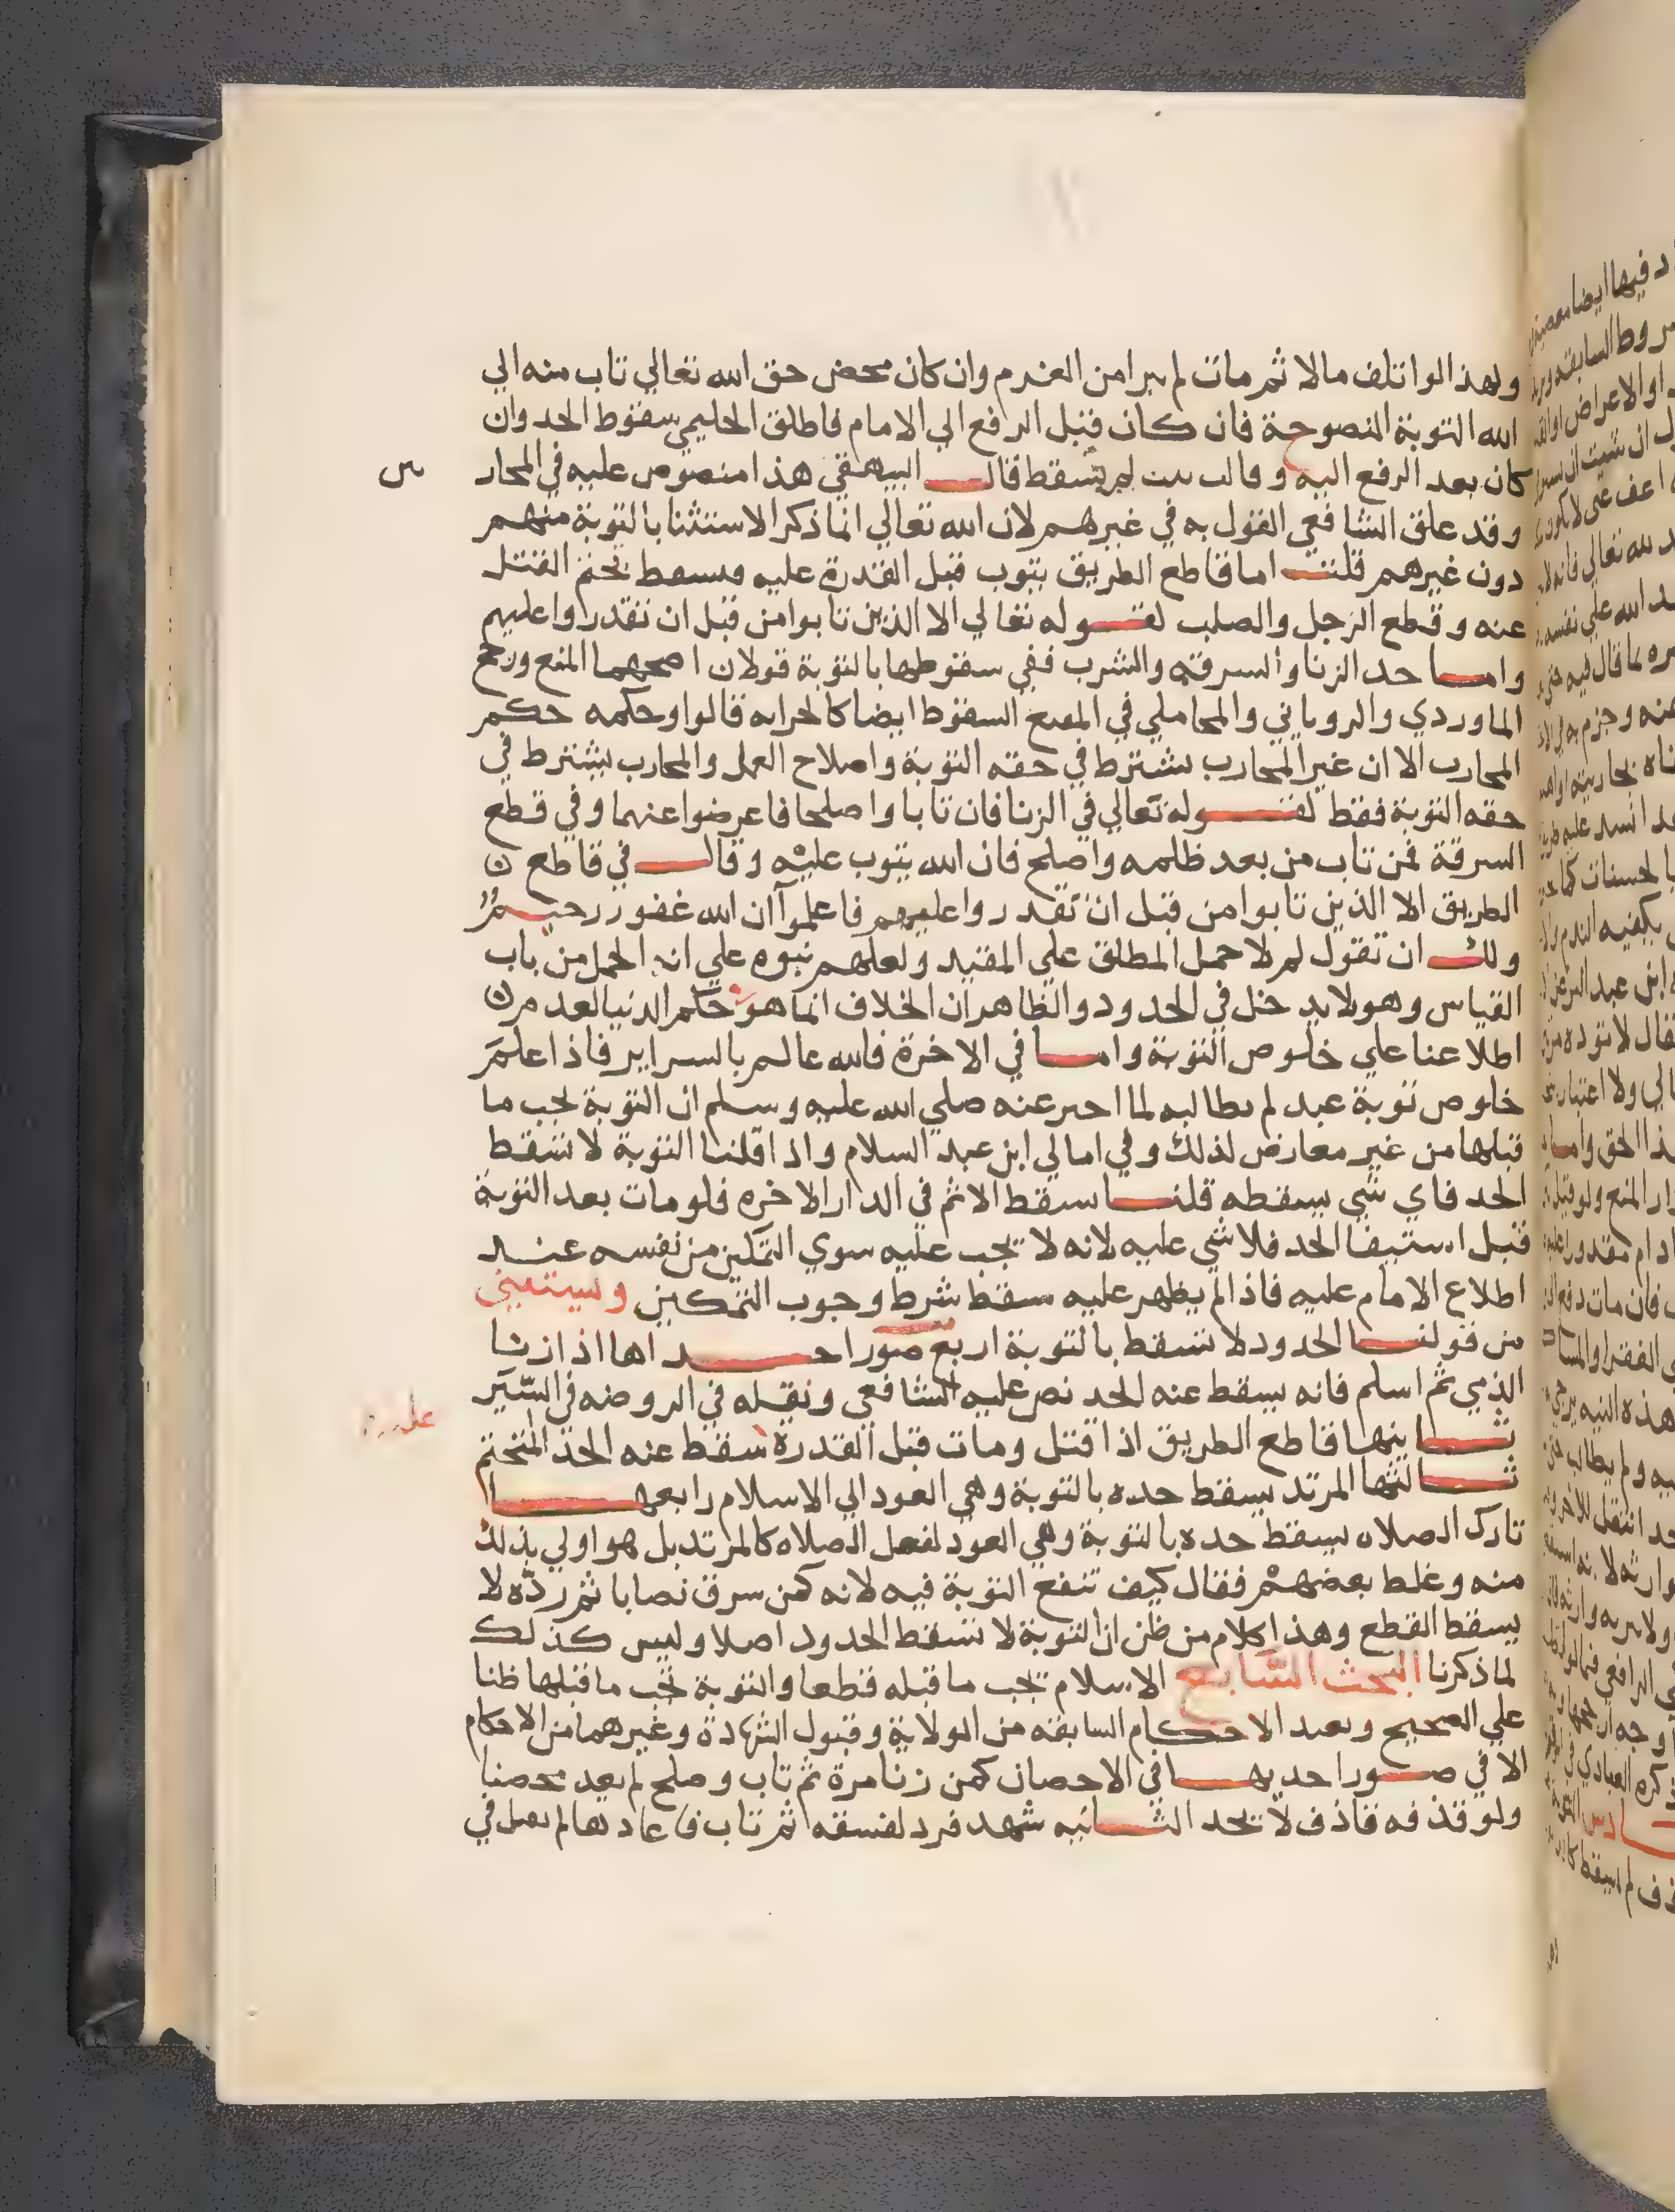 ولهذا لو اتلف مالا ثم مات لم يبرا من الغرم وان كان محض حق الله تعالي تاب منه الي
الله التوبة النصوحة فان كان قبل الرفع الي الامام فاطلق الحليمي سقوط الحد وان
كان بعد الرفع اليه وقال تبت لم يسقط قال البيهقي هذا منصوص عليه في المحار
وقد علق الشافعي القول به في غيرهم لان الله تعالي انما ذكر الاستثنا بالتوبة منهم
دون غيرهم قلت اما قاطع الطريق يتوب قبل القدرة عليه فيسقط تحتم القتل
عنه وقطع الرجل والصلب لقوله تعالي الا الذين تابوا من قبل ان تقدروا عليهم
واما حد الزنا والسرقة والشرب ففي سقوطها بالتوبة قولان اصحهما المنع ورجح
الماوردي والروياني والمحاملي في المقنع السقوط ايضا كالحرابه قالوا وحكمه حكم
المحارب الا ان غير المحارب يشترط في حقه التوبة واصلاح العمل والمحارب يشترط في
حقه التوبة فقط لقوله تعالي في الزنا فان تابا واصلحا فاعرضوا عنهما وفي قطع
السرقة فمن تاب من بعد ظلمه واصلح فان الله يتوب عليه وقال في قاطع
الطريق الا الذين تابوا من قبل ان تقدروا عليهم فاعلموا ان الله غفور رحيم
ولك ان تقول لم لا حمل المطلق علي المقيد ولعلهم نبوه علي انه الحمل من باب
القياس وهو لا يدخل في الحدود والظاهر ان الخلاف انما هو في حكم الدنيا لعدم
اطلاعنا علي خلوص التوبة واما في الاخرة فالله عالم بالسراير فاذا علم
خلوص توبة عبد لم يطالبه لما اخبر عنه صلي الله عليه وسلم ان التوبة تجب ما
قبلها من غير معارض لذلك وفي امالي ابن عبد السلام واذا قلنا التوبة لا تسقط
الحد فاي شي يسقطه قلنا يسقط الاثم في الدار الاخره فلو مات بعد التوبة
قبل استيفا الحد فلا شي عليه لانه لا يجب عليه سوي التمكين من نفسه عند
اطلاع الامام عليه فاذا لم يظهر عليه سقط شرط وجوب التمكين وسيتثني
من قولنا الحدود لا تسقط بالتوبة اربع صور احداها اذا زنا
الذمي ثم اسلم فانه يسقط عنه الحد نص عليه الشافعي ونقله في الروضه في السير
ثانيها قاطع الطريق اذا قتل ومات قبل القدرة سقط عنه الحد المتحتم
ثالثها المرتد يسقط حده بالتوبة وهي العود الي الاسلام رابعها
تارك الصلاه يسقط حده بالتوبة وهي العود لفعل الصلاه كالمرتد بل هو اولي بذلك
منه وغلط بعضهم فقال كيف تنفع التوبة فيه لانه كمن سرق نصابا ثم رده لا
يسقط القطع وهذا كلام من ظن ان التوبة لا تسقط الحدود اصلا وليس كذلك
لما ذكرنا البحث السابع الاسلام يجب ما قبله قطعا والتوبة تجب ما قبلها ظنا
علي الصحيح وتعيد الاحكام السابقه من الولاية وقبول الشهادة وغيرهما من الاحكام
الا في صور احديها في الاحصان كمن زنا مرة ثم تاب وصلح لم يعد محصنا
ولو قذفه قاذف لا يحد الثانيه شهد فرد لفسقه ثم تاب فاعادها لم يقبل في